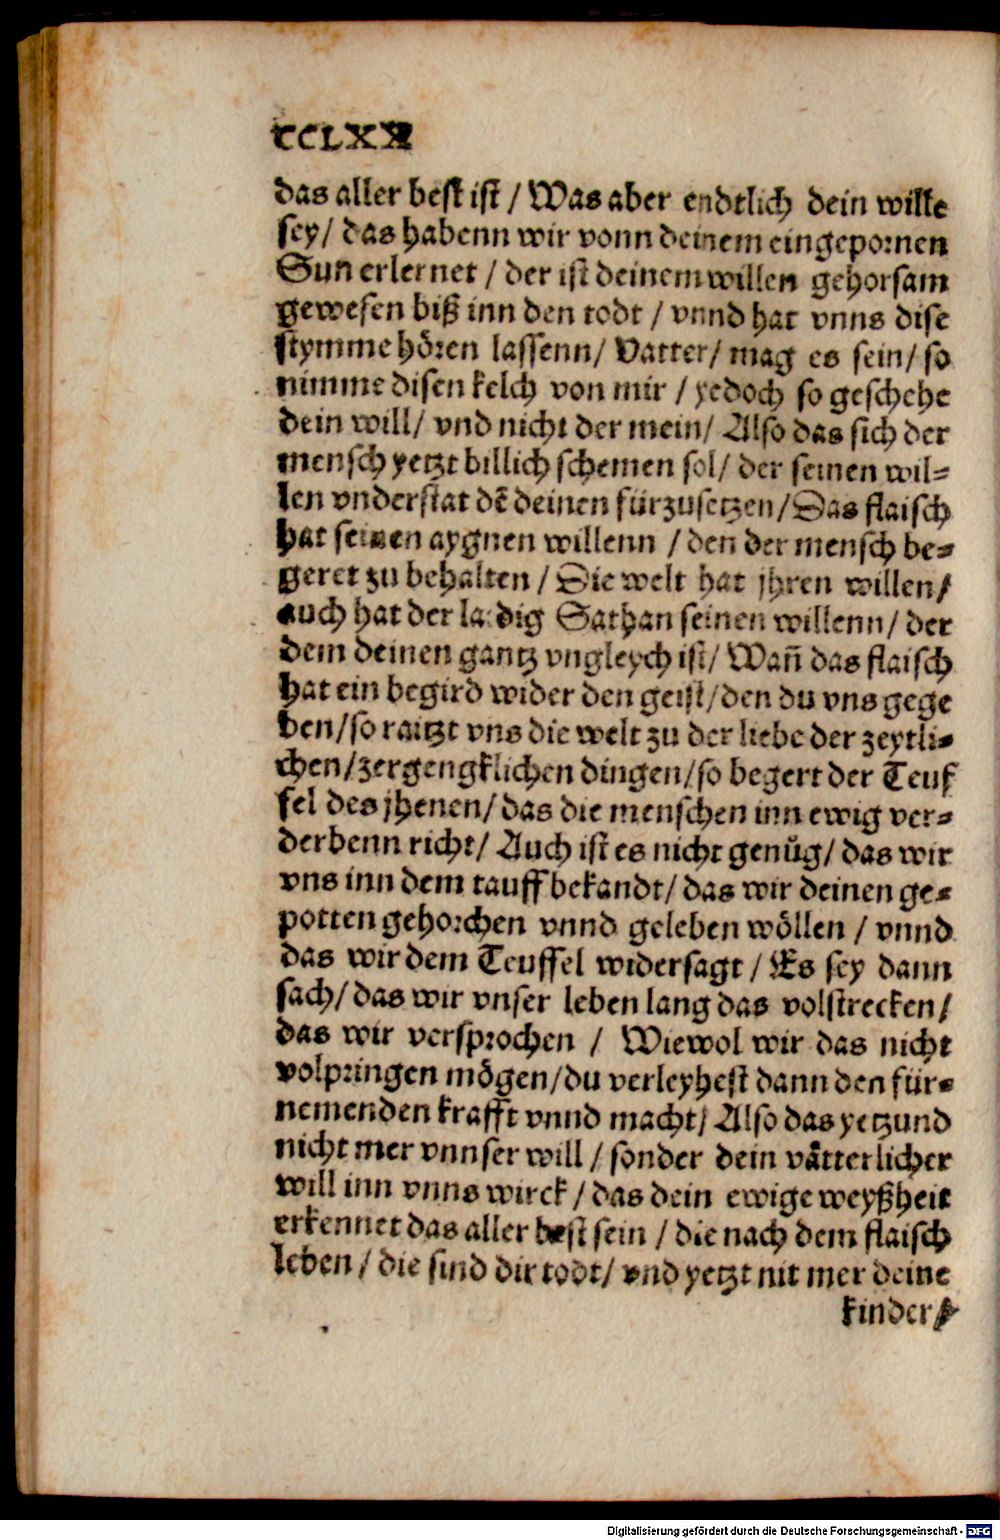 CCLXX
das aller best ist / Was aber endtlich dein wille
sey / das habenn wir vonn deinem eingepornen
Sun erlernet / der ist deinem willen gehorsam
gewesen biß inn den todt / vnnd hat vnns dise
stymme hören lassenn / Vatter / mag es sein / so
nimme disen kelch von mir / yedoch so geschehe
dein will / vnd nicht der mein / Also das sich der
mensch yetzt billich schemen sol / der seinen wil⸗
len vnderstat dē deinen fürzusetzen / Das flaisch
hat seinen aygnen willenn / den der mensch be⸗
geret zu behalten / Die welt hat jhren willen /
auch hat der laidig Sathan seinen willenn / der
dem deinen gantz vngleych ist / Wañ das flaisch
hat ein begird wider den geist / den du vns gege
ben / so raitzt vns die welt zu der liebe der zeytli⸗
chen / zergengklichen dingen / so begert der Teuf
fel des jhenen / das die menschen inn ewig ver⸗
derbenn richt / Auch ist es nicht genůg / das wir
vns inn dem tauff bekandt / das wir deinen ge⸗
potten gehorchen vnnd geleben wöllen / vnnd
das wir dem Teuffel widersagt / Es sey dann
sach / das wir vnser leben lang das volstrecken /
das wir versprochen / Wiewol wir das nicht
volpringen mögen / du verleyhest dann den für⸗
nemenden krafft vnnd macht / Also das yetzund
nicht mer vnnser will / sonder dein vätterlicher
will inn vnns wirck / das dein ewige weyßheit
erkennet das aller best sein / die nach dem flaisch
leben / die sind dir todt / vnd yetzt nit mer deine
kinder /
Digitalisierung gefördert durch die Deutsche Forschungsgemeinschaft - DFG